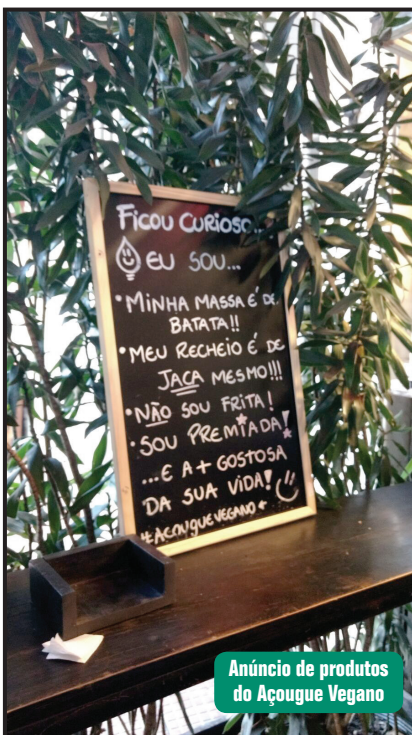 FICOU CURIOSO...
EU SOU...
• MINHA MASSA É DE
BATATA!!
• MEU RECHEIO É DE
JACA MESMO!!!
• NÃO SOU FRITA!
• SOU PREMIADA!
...E A + GOSTOSA
DA SUA VIDA!
#AÇOUGUEVEGANO
Anúncio de produtos
do Açougue Vegano